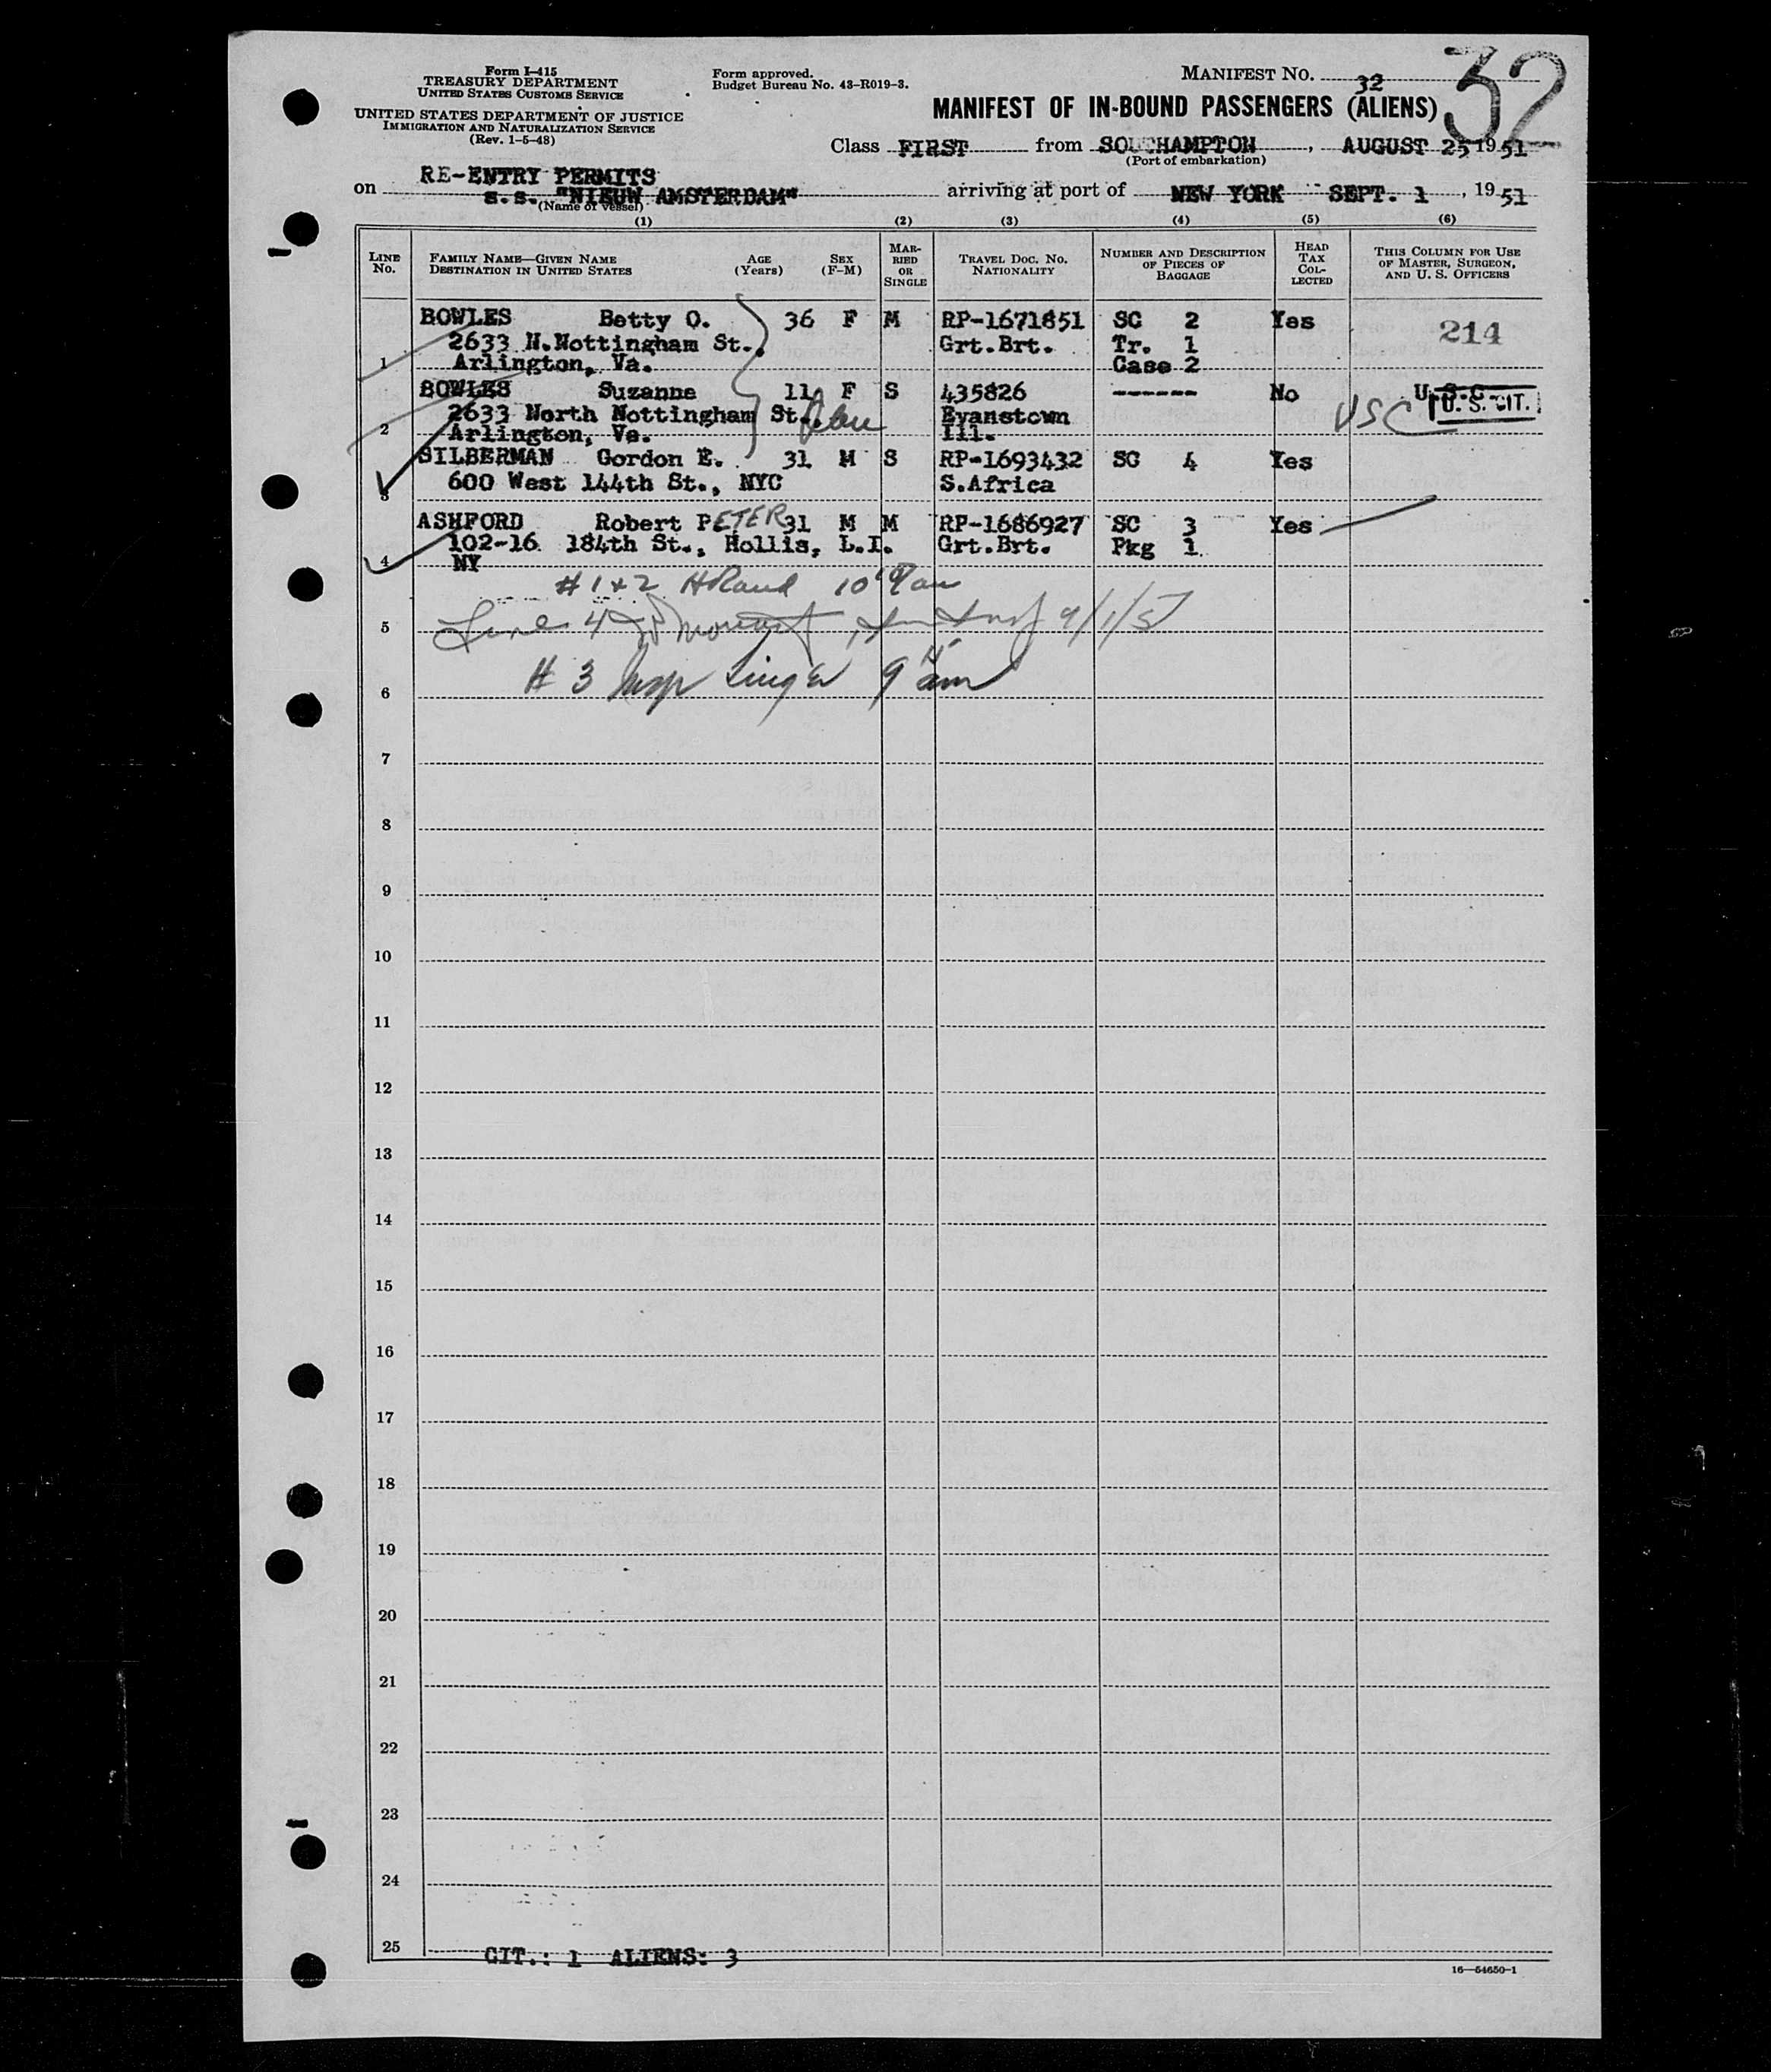 Form I-415
TREASURY DEPARTMENT
UNITED STATES CUSTOMS SERVICE
UNITED STATES DEPARTMENT OF JUSTICE
IMMIGRATION AND NATURALIZATION SERVICE
(Rev. 1-5-48)
Form approved.
Budget Bureau No. 43-R019-3.
MANIFEST NO. 32
32
MANIFEST OF IN-BOUND PASSENGERS (ALIENS)
Class FIRST from SOUTHAMPTON, AUGUST 25 1951
(Port of embarkation)
RE-ENTRY PERMITS
on S.S. "NIEUW AMSTERDAM" arriving at port of NEW YORK SEPT. 1, 1951
(Name of vessel)
(1) (2) (3) (4) (5) (6)
LINE No.
FAMILY NAME—GIVEN NAME
DESTINATION IN UNITED STATES
AGE (Years)
SEX (F-M)
MARRIED OR SINGLE
TRAVEL DOC. NO.
NATIONALITY
NUMBER AND DESCRIPTION OF PIECES OF BAGGAGE
HEAD TAX COLLECTED
THIS COLUMN FOR USE OF MASTER, SURGEON, AND U. S. OFFICERS
BOWLES Betty O. 36 F M RP-1671851 SC 2 Yes 214
2633 N.Nottingham St., Grt.Brt. Tr. 1
1 Arlington, Va. Case 2
BOWLES Suzanne 11 F S 435826 ------ No U.S.C. U. S. CIT.
2633 North Nottingham St., Evanstown USC
2 Arlington, Va. Ill.
SILBERMAN Gordon E. 31 M S RP-1693432 SC 4 Yes
600 West 144th St., NYC S.Africa
3
ASHFORD Robert PETER 31 M M RP-1686927 SC 3 Yes
102-16 184th St., Hollis, L.I. Grt.Brt. Pkg 1
4 NY
#1+2
Line 4 9/1/51
5
# 3 Insp Singer 9 am
6
7
8
9
10
11
12
13
14
15
16
17
18
19
20
21
22
23
24
25 CIT.: 1 ALIENS: 3
16—54650-1